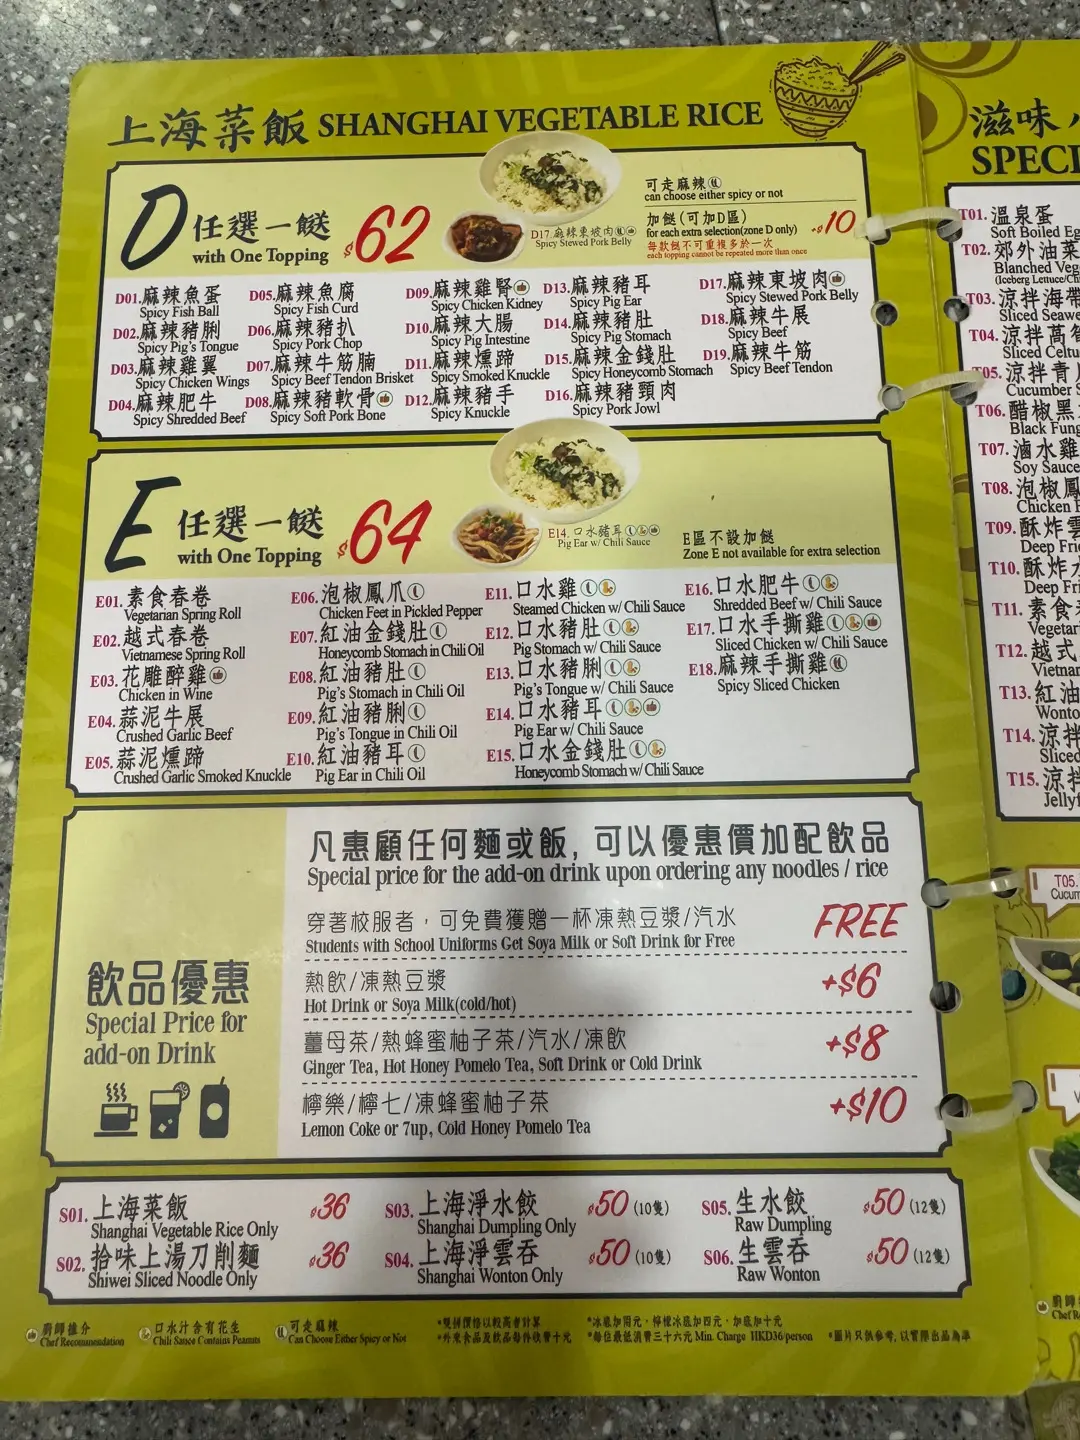 上海菜飯 SHANGHAI VEGETABLE RICE
D 任選一餸 $62
with One Topping
可走麻辣
can choose either spicy or not
加餸(可加D區)
for each extra selection(zone D only)
+$10
每款餸不可重複多於一次
each topping cannot be repeated more than once
D17.麻辣東坡肉
Spicy Stewed Pork Belly
D01.麻辣魚蛋
Spicy Fish Ball
D02.麻辣豬脷
Spicy Pig's Tongue
D03.麻辣雞翼
Spicy Chicken Wings
D04.麻辣肥牛
Spicy Shredded Beef
D05.麻辣魚腐
Spicy Fish Curd
D06.麻辣豬扒
Spicy Pork Chop
D07.麻辣牛筋腩
Spicy Beef Tendon Brisket
D08.麻辣豬軟骨
Spicy Soft Pork Bone
D09.麻辣雞腎
Spicy Chicken Kidney
D10.麻辣大腸
Spicy Pig Intestine
D11.麻辣燻蹄
Spicy Smoked Knuckle
D12.麻辣豬手
Spicy Knuckle
D13.麻辣豬耳
Spicy Pig Ear
D14.麻辣豬肚
Spicy Pig Stomach
D15.麻辣金錢肚
Spicy Honeycomb Stomach
D16.麻辣豬頸肉
Spicy Pork Jowl
D17.麻辣東坡肉
Spicy Stewed Pork Belly
D18.麻辣牛展
Spicy Beef
D19.麻辣牛筋
Spicy Beef Tendon
E 任選一餸 $64
with One Topping
E14.口水豬耳
Pig Ear w/ Chili Sauce
E區不設加餸
Zone E not available for extra selection
E01.素食春卷
Vegetarian Spring Roll
E02.越式春卷
Vietnamese Spring Roll
E03.花雕醉雞
Chicken in Wine
E04.蒜泥牛展
Crushed Garlic Beef
E05.蒜泥燻蹄
Crushed Garlic Smoked Knuckle
E06.泡椒鳳爪
Chicken Feet in Pickled Pepper
E07.紅油金錢肚
Honeycomb Stomach in Chili Oil
E08.紅油豬肚
Pig's Stomach in Chili Oil
E09.紅油豬脷
Pig's Tongue in Chili Oil
E10.紅油豬耳
Pig Ear in Chili Oil
E11.口水雞
Steamed Chicken w/ Chili Sauce
E12.口水豬肚
Pig Stomach w/ Chili Sauce
E13.口水豬脷
Pig's Tongue w/ Chili Sauce
E14.口水豬耳
Pig Ear w/ Chili Sauce
E15.口水金錢肚
Honeycomb Stomach w/ Chili Sauce
E16.口水肥牛
Shredded Beef w/ Chili Sauce
E17.口水手撕雞
Sliced Chicken w/ Chili Sauce
E18.麻辣手撕雞
Spicy Sliced Chicken
飲品優惠
Special Price for
add-on Drink
凡惠顧任何麵或飯, 可以優惠價加配飲品
Special price for the add-on drink upon ordering any noodles / rice
穿著校服者，可免費獲贈一杯凍熱豆漿/汽水 FREE
Students with School Uniforms Get Soya Milk or Soft Drink for Free
熱飲/凍熱豆漿 +$6
Hot Drink or Soya Milk(cold/hot)
薑母茶/熱蜂蜜柚子茶/汽水/凍飲 +$8
Ginger Tea, Hot Honey Pomelo Tea, Soft Drink or Cold Drink
檸樂/檸七/凍蜂蜜柚子茶 +$10
Lemon Coke or 7up, Cold Honey Pomelo Tea
S01.上海菜飯 $36
Shanghai Vegetable Rice Only
S02.拾味上湯刀削麵 $36
Shiwei Sliced Noodle Only
S03.上海淨水餃 $50(10隻)
Shanghai Dumpling Only
S04.上海淨雲吞 $50(10隻)
Shanghai Wonton Only
S05.生水餃 $50(12隻)
Raw Dumpling
S06.生雲吞 $50(12隻)
Raw Wonton
廚師推介
Chef Recommendation
口水汁含有花生
Chili Sauce Contains Peanuts
可走麻辣
Can Choose Either Spicy or Not
*雙拼價格以較高者計算
*外來食品及飲品每件收費十元
*每位最低消費三十六元 Min. Charge HKD36/person
*圖片只供參考, 以實際出品為準
滋味
SPECI
T01.溫泉蛋
Soft Boiled Eg
T02.郊外油菜
Blanched Veg
(Iceberg Lettuce/Ch
T03.涼拌海帶
Sliced Seawe
T04.涼拌萵筍
Sliced Celtu
T05.涼拌青
Cucumber S
T06.醋椒黑
Black Fung
T07.滷水雞
Soy Sauce
T08.泡椒鳳
Chicken F
T09.酥炸雲
Deep Frie
T10.酥炸水
Deep Fri
T11.素食春
Vegetar
T12.越式
Vietnan
T13.紅油
Wonto
T14.涼拌
Sliced
T15.涼拌
Jellyf
T05.
Cucum
廚師
Chef R